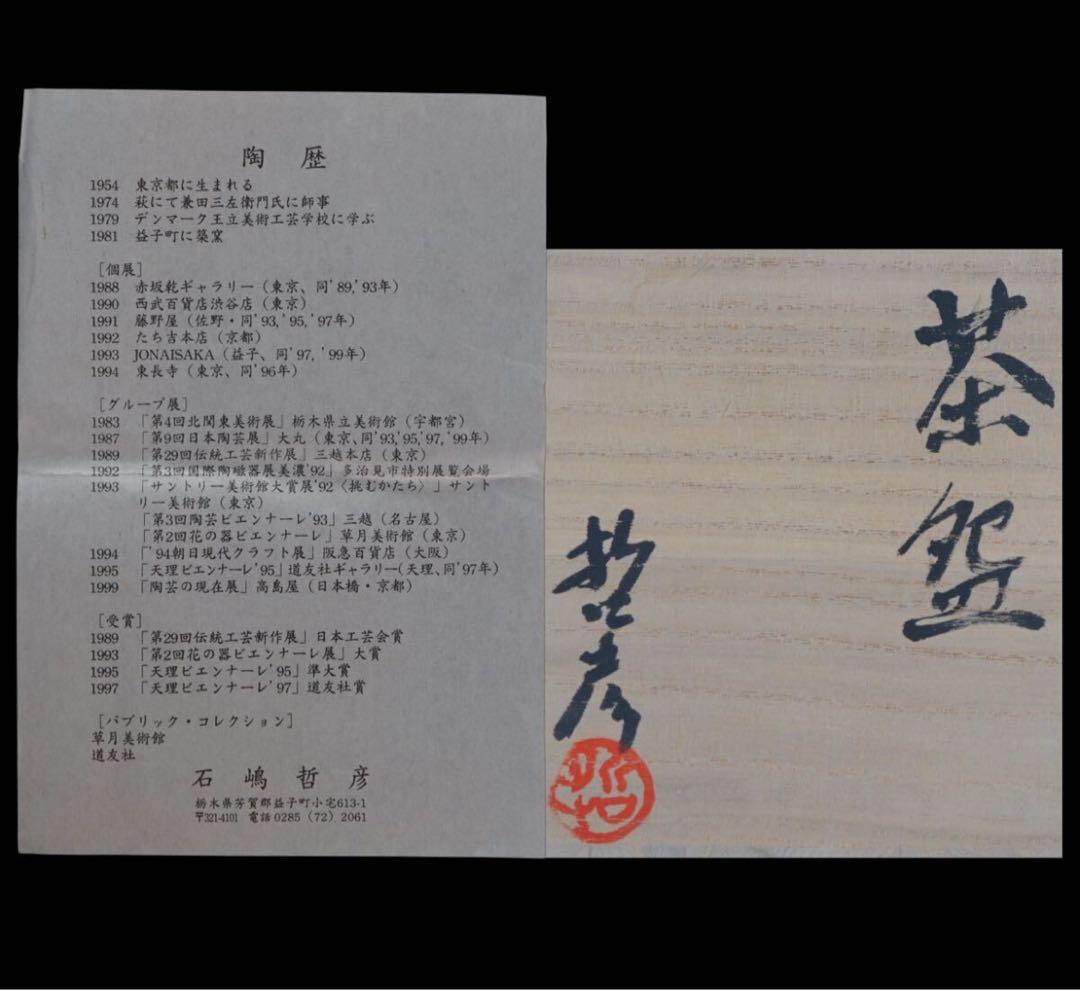 陶 歴
1954 東京都に生まれる
1974 萩にて兼田三左衛門氏に師事
1979 デンマーク王立美術工芸学校に学ぶ
1981 益子町に築窯
［個展］
1988 赤坂乾ギャラリー（東京、同'89,'93年）
1990 西武百貨店渋谷店（東京）
1991 藤野屋（佐野・同'93,'95,'97年）
1992 たち吉本店（京都）
1993 JONAISAKA（益子、同'97, '99年）
1994 東長寺（東京、同'96年）
［グループ展］
1983 「第4回北関東美術展」栃木県立美術館（宇都宮）
1987 「第9回日本陶芸展」大丸（東京、同'93,'95,'97,'99年）
1989 「第29回伝統工芸新作展」三越本店（東京）
1992 「第3回国際陶磁器展美濃'92」多治見市特別展覧会場
1993 「サントリー美術館大賞展'92〈挑むかたち〉」サント
リー美術館（東京）
「第3回陶芸ビエンナーレ'93」三越（名古屋）
「第2回花の器ビエンナーレ」草月美術館（東京）
1994 「'94朝日現代クラフト展」阪急百貨店（大阪）
1995 「天理ビエンナーレ'95」道友社ギャラリー(天理、同'97年）
1999 「陶芸の現在展」高島屋（日本橋・京都）
［受賞］
1989 「第29回伝統工芸新作展」日本工芸会賞
1993 「第2回花の器ビエンナーレ展」大賞
1995 「天理ビエンナーレ'95」準大賞
1997 「天理ビエンナーレ'97」道友社賞
［パブリック・コレクション］
草月美術館
道友社
石 嶋 哲 彦
栃木県芳賀郡益子町小宅613-1
〒321-4101 電話0285（72）2061
茶盌
哲彦